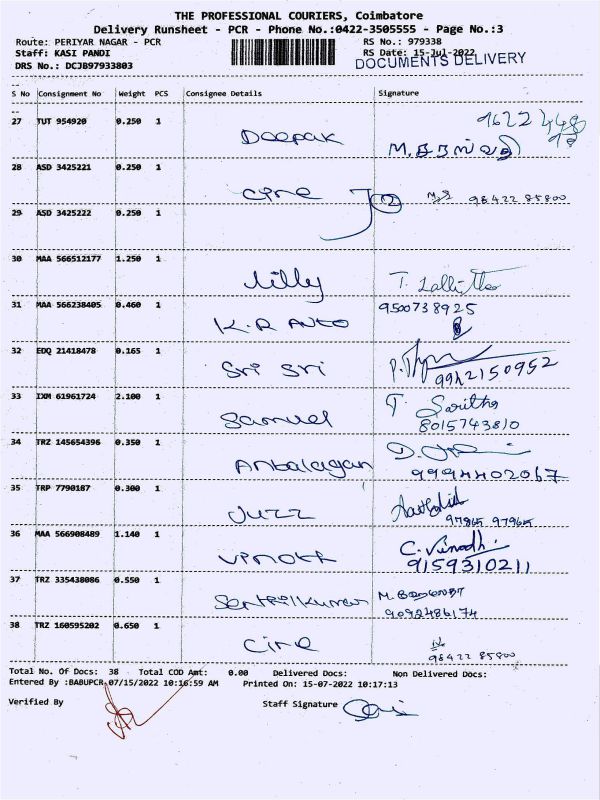 THE PROFESSIONAL COURIERS, Coimbatore
Delivery Runsheet - PCR - Phone No.:0422-3505555 - Page No.:3
Route: PERIYAR NAGAR - PCR RS No.: 979338
Staff: KASI PANDI RS Date: 15-Jul-2022
DRS No.: DCJB97933803 DOCUMENTS DELIVERY
S No Consignment No Weight PCS Consignee Details Signature
27 TUT 954920 0.250 1 Deepak
M. சரஸ்வதி
28 ASD 3425221 0.250 1 Cine 2 98422 85800
29 ASD 3425222 0.250 1
30 MAA 566512177 1.250 1 Lilly
31 MAA 566238405 0.460 1 K.R ANTO 9500738925
32 EDQ 21418478 0.165 1 Sri Sri 9942150952
33 IXM 61961724 2.100 1 Samuel T. Saritha
8015743810
34 TRZ 145654396 0.350 1 Anbalagan 9994402067
35 TRP 7790187 0.300 1 Juzz 97865 97965
36 MAA 566908489 1.140 1 C. Vinodh.
9159310211
37 TRZ 335438086 0.550 1 Senthilkumar 9092486174
38 TRZ 160595202 0.650 1 Cine 98422 85800
Total No. Of Docs: 38 Total COD Amt: 0.00 Delivered Docs: Non Delivered Docs:
Entered By :BABUPCR 07/15/2022 10:16:59 AM Printed On: 15-07-2022 10:17:13
Verified By Staff Signature